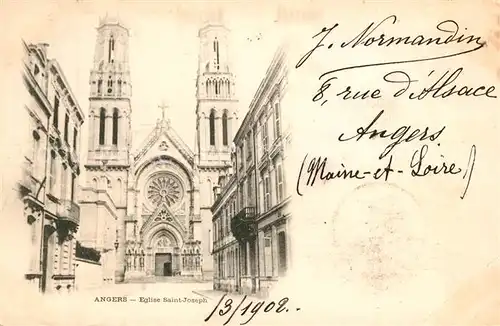 J. Normandin
8, rue d'Alsace
Angers
(Maine-et-Loire)
ANGERS — Eglise Saint-Joseph
/3/1902..